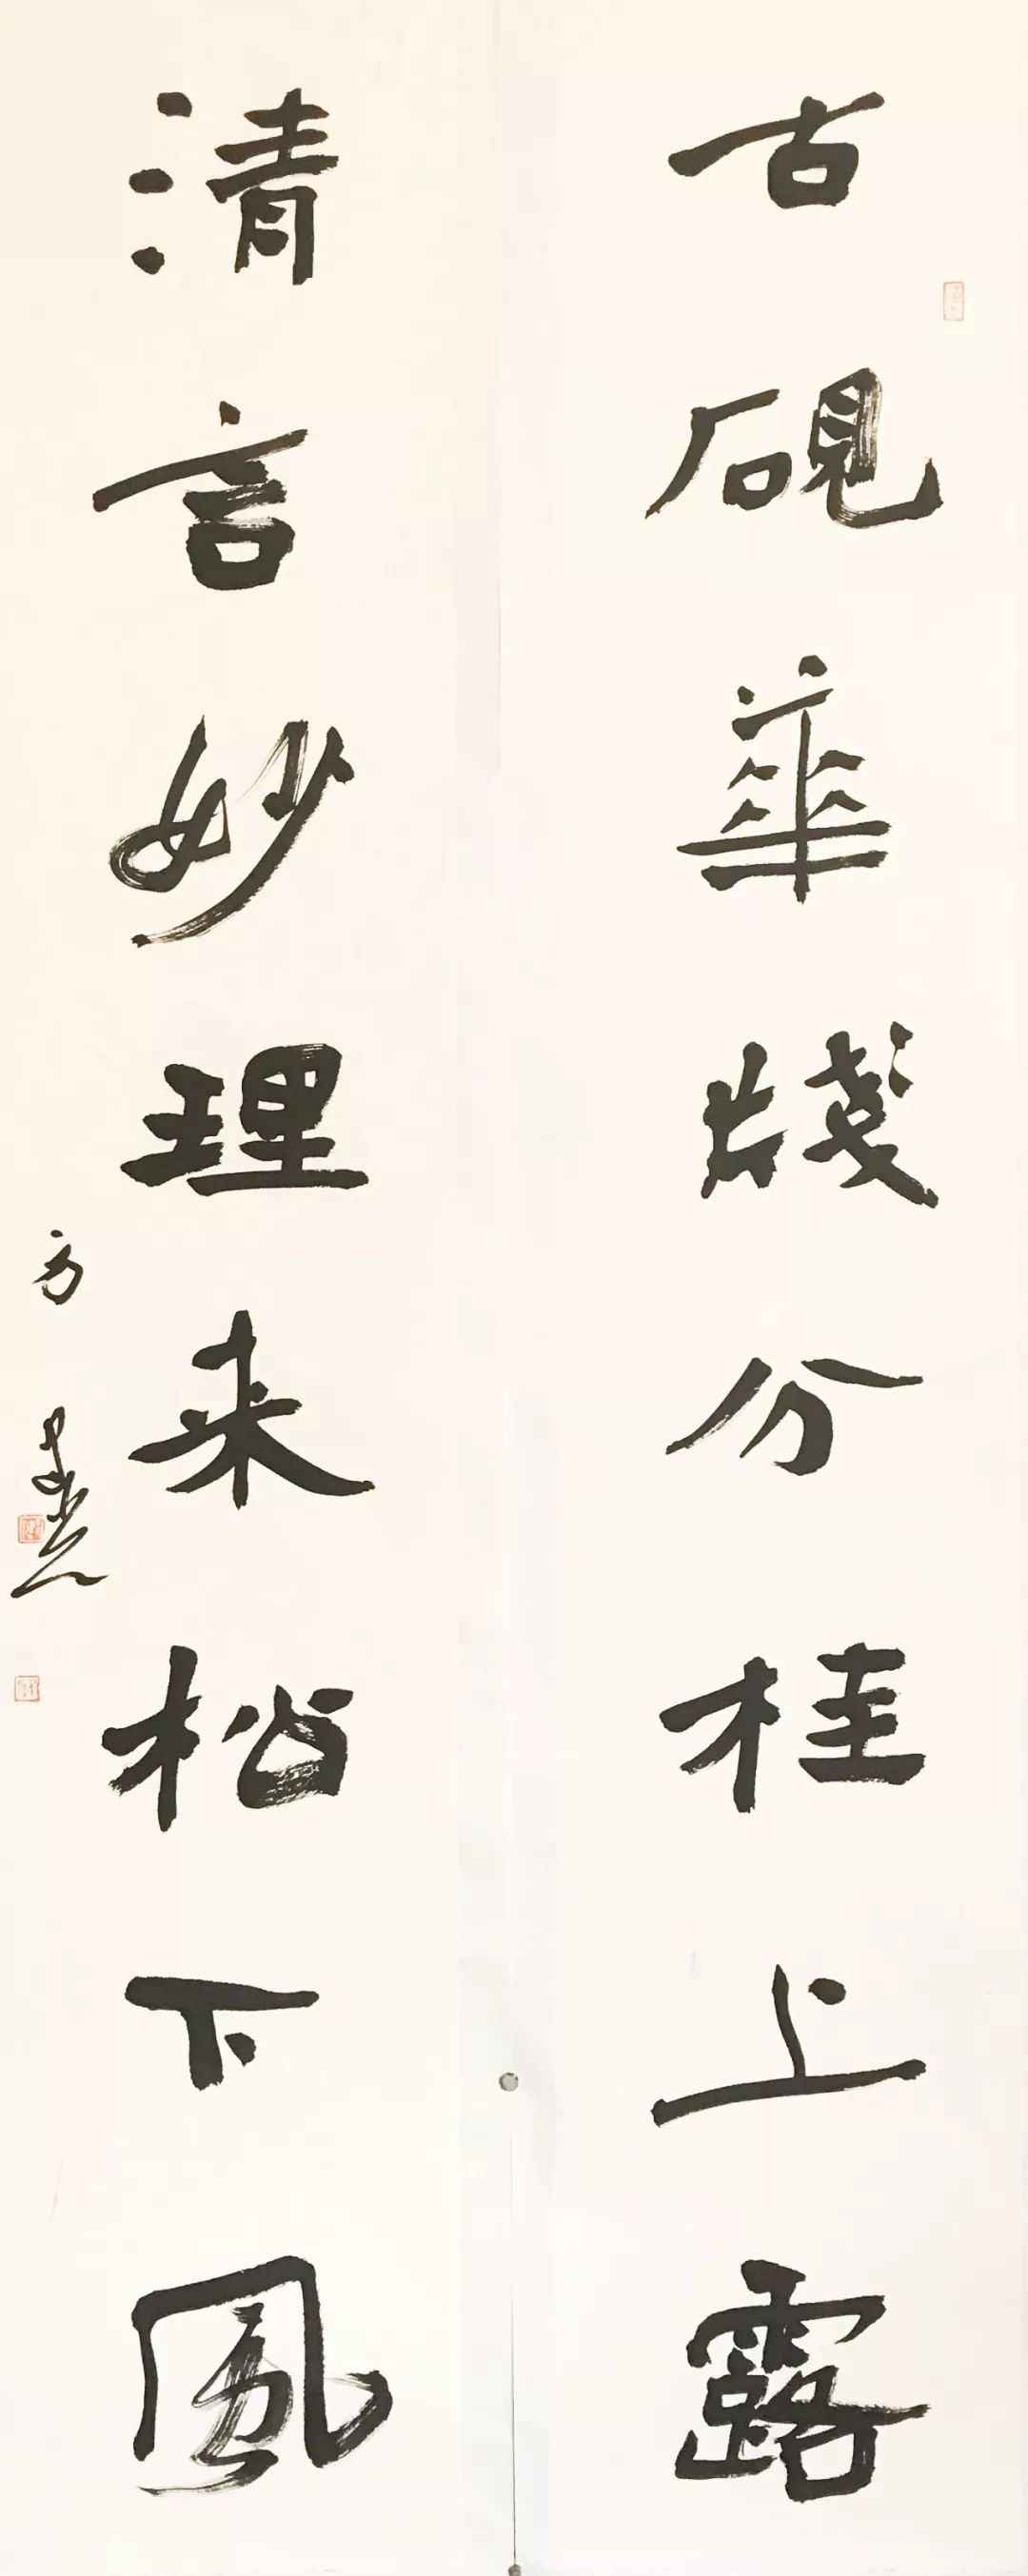 古硯華牋分桂上露
清言妙理来松下風
方